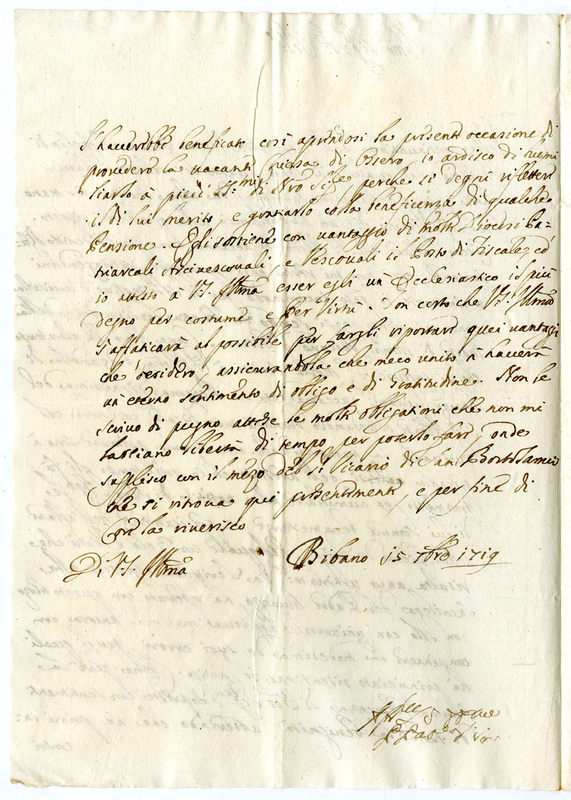 l'haverebbe beneficato così aprendosi la presente occasione di
provedere la vacante di Ossero, io ardisco di
à piedi di Nro Sigre perche si degni rifletter
il di lui merito, e gratiarlo colla beneficenza di qualche
Pensione. Egli sostiene con vantaggio di molte Diocesi Pa-
triarcali Arcivescovali, e Vescovali il Posto di Fiscale, ed
io attesto à V.S. Illma esser egli un Ecclesiastico il più
degno per costume e per Virtù. Son certo che V.S. Illma
s'affaticarà al possibile per fargli riportare quei vantaggi
che desidero, assicurandola che meco unito n'haverà
un eterno sentimento di obligo e di Gratitudine. Non le
scrivo di pugno attese le molte obligationi che non mi
lasciano libertà di tempo per poterlo fare, onde
suplisco con il mezo del Sr Vicario di San Bortolamio
che si ritrova quì presentemente, e per fine di
core la riverisco
Di V.S. Illma Bibano 15 7bre 1719